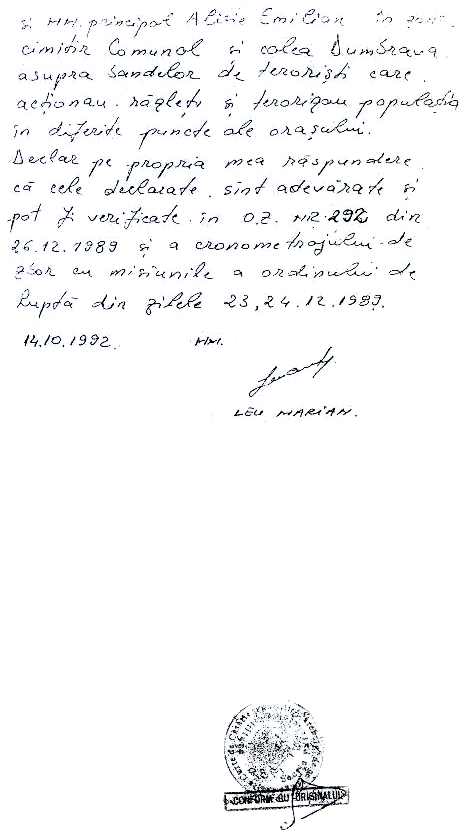 și MM. principal Alisie Emilian în zona
cimitir Comunal și calea Dumbrava
asupra bandelor de teroriști care
acționau răzleți și terorizau populația
în diferite puncte ale orașului.
Declar pe propria mea răspundere
că cele declarate sînt adevărate și
pot fi verificate în O.Z. NR. 292 din
26.12.1989 și a cronometrajului de
zbor cu misiunile a ordinului de
luptă din zilele 23, 24.12.1989.
14.10.1992. MM.
LEU MARIAN.
CONFORM CU ORIGINALUL